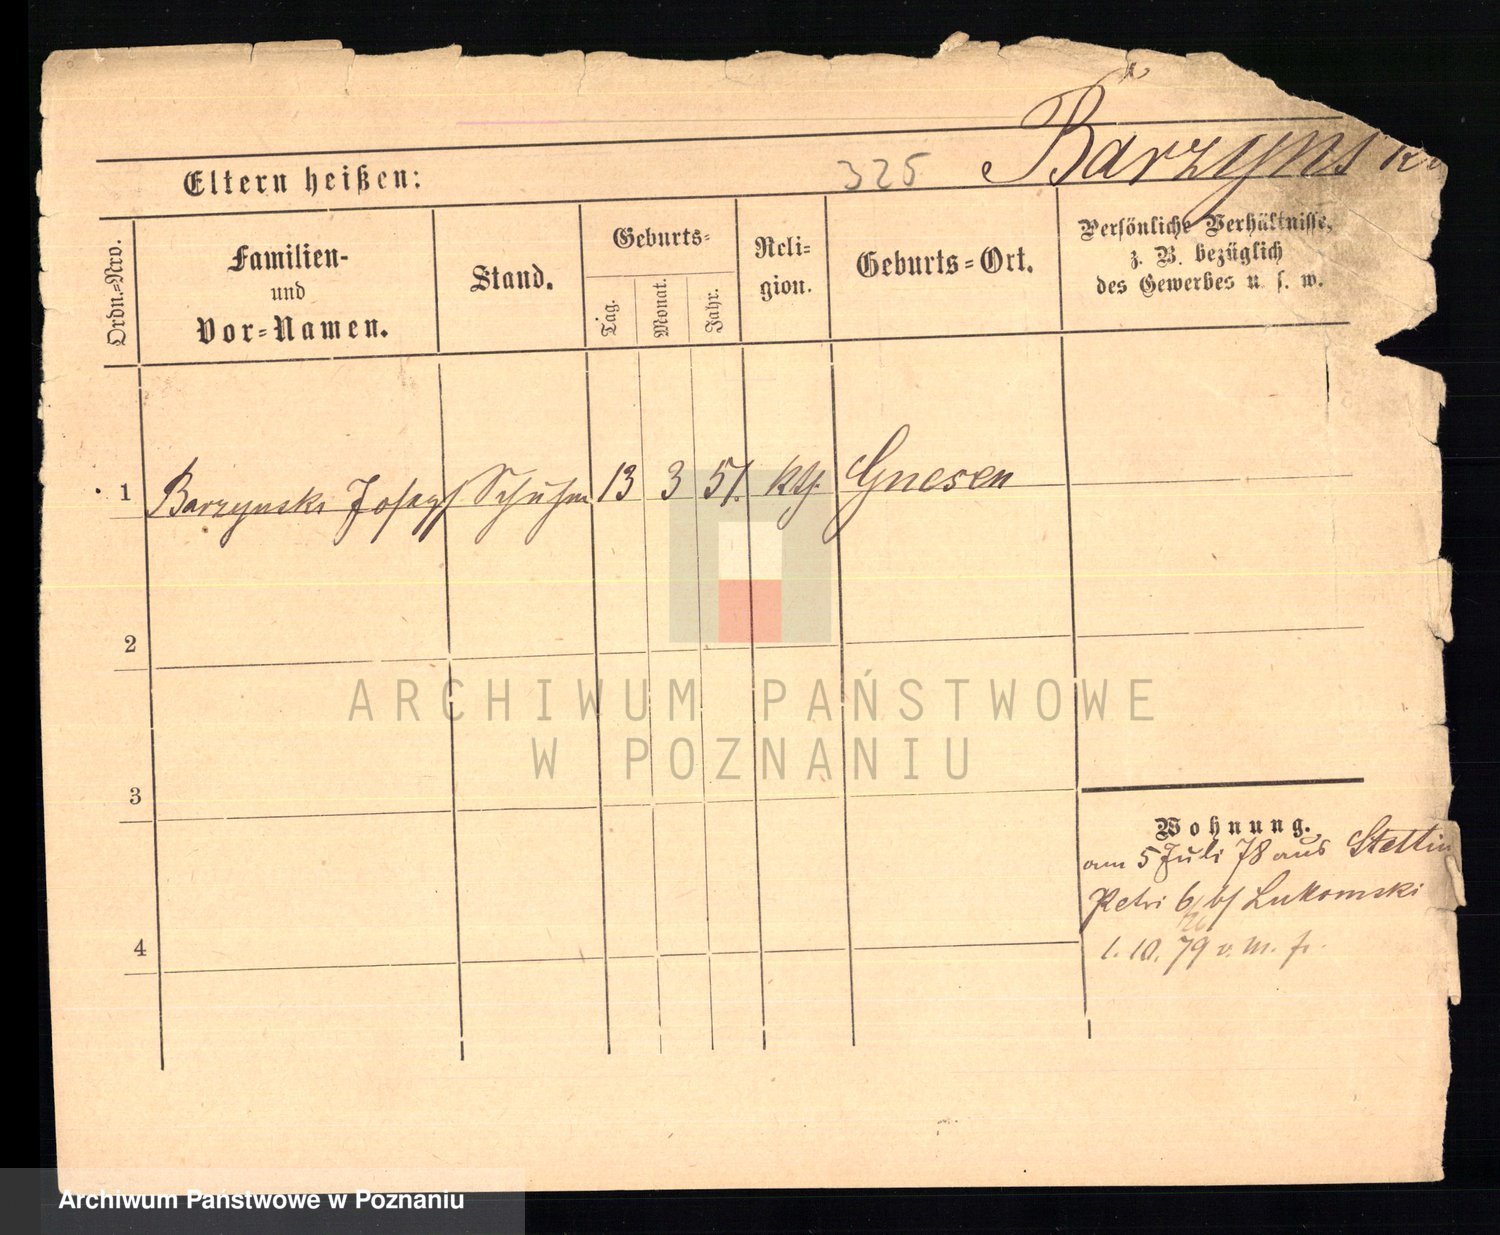 325 Barzynski
Eltern heißen:
Ordn.-Nro.
Familien-
und
Vor-Namen.
Stand.
Geburts-
Tag.
Monat.
Jahr.
Reli-
gion.
Geburts-Ort.
Persönliche Verhältnisse,
z. B. bezüglich
des Gewerbes u. s. w.
1 Barzynski Joseph Schuhm 13 3 51. kth. Gnesen
2
3
4
Wohnung.
am 5 Juli 78 aus Stettin
Petri 6 b/ Lukomski
1. 10. 79 v. m. fr.
ARCHIWUM PAŃSTWOWE
W POZNANIU
Archiwum Państwowe w Poznaniu